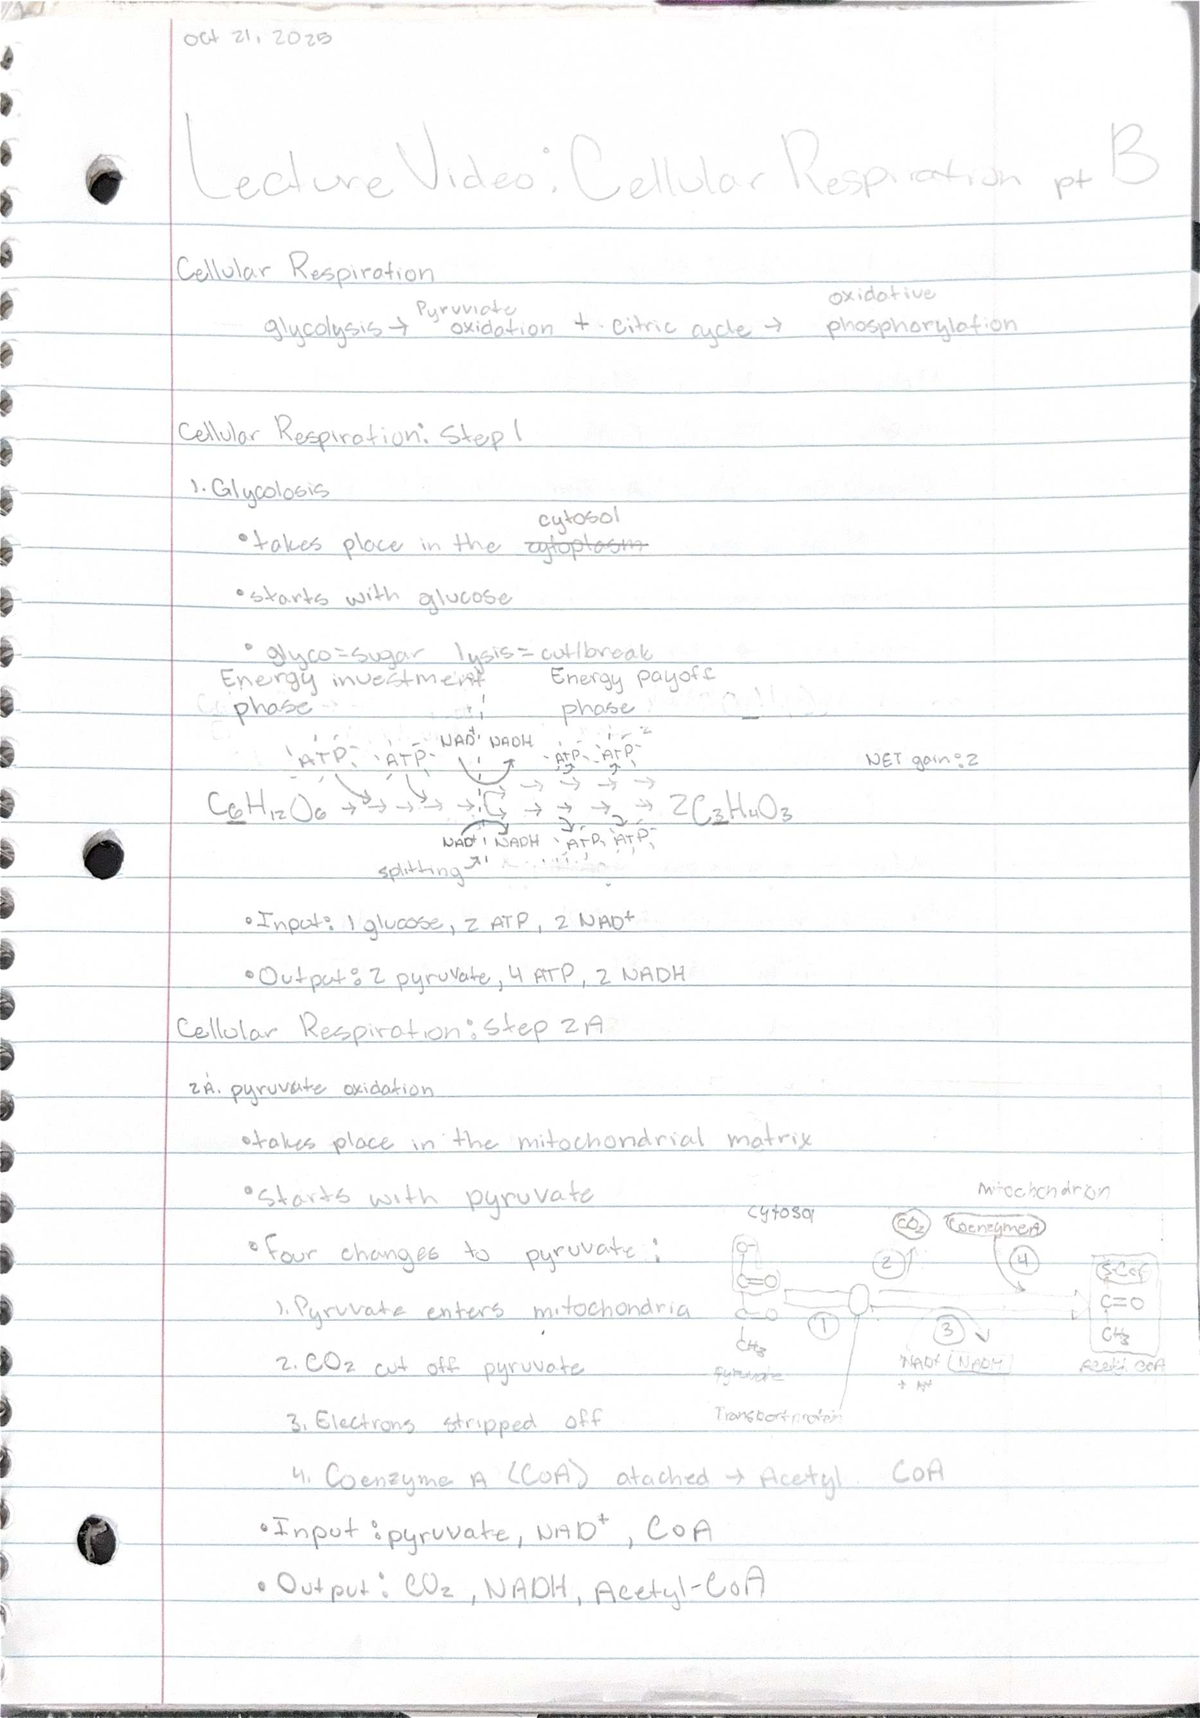 Oct 21, 2025
Lecture Video: Cellular Respiration pt B
Cellular Respiration
glycolysis → Pyruviate oxidation + citric cycle → oxidative phosphorylation
Cellular Respiration: Step 1
1. Glycolosis
• takes place in the cytoplasm cytosol
• starts with glucose
• glyco = sugar lysis = cut/break
Energy investment phase
Energy payoff phase
ATP ATP NAD+ NADH ATP ATP
NET gain: 2
C6H12O6 → → → → → → → → → 2C3H4O3
NAD+ NADH ATP ATP
splitting
• Input: 1 glucose, 2 ATP, 2 NAD+
• Output: 2 pyruvate, 4 ATP, 2 NADH
Cellular Respiration: Step 2A
2A. pyruvate oxidation
• takes place in the mitochondrial matrix
• Starts with pyruvate
• Four changes to pyruvate:
1. Pyruvate enters mitochondria
2. CO2 cut off pyruvate
3. Electrons stripped off
4. Coenzyme A (CoA) atached → Acetyl CoA
cytosol
mitochondrion
CO2 Coenzyme A
O-
C=O
C=O
CH3
Pyruvate
Transport protein
1
2
3
4
NAD+ NADH
+ H+
S-CoA
C=O
CH3
Acetyl CoA
• Input: pyruvate, NAD+, CoA
• Output: CO2, NADH, Acetyl-CoA